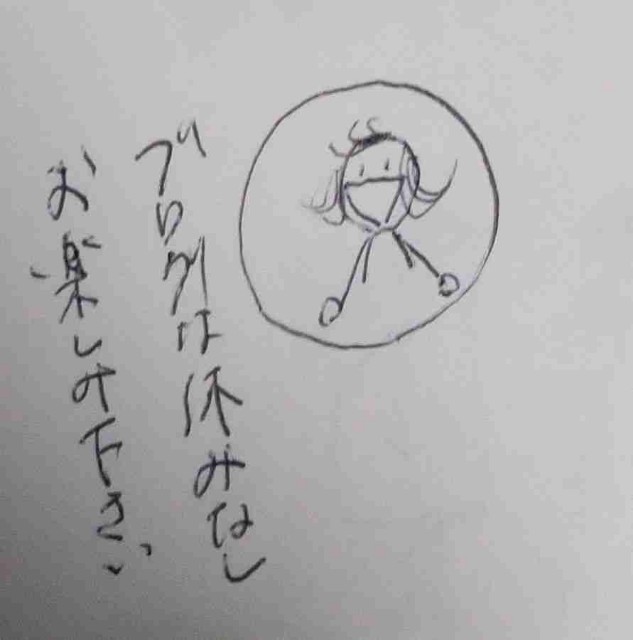 ブログは休みなし
お楽しみ下さい